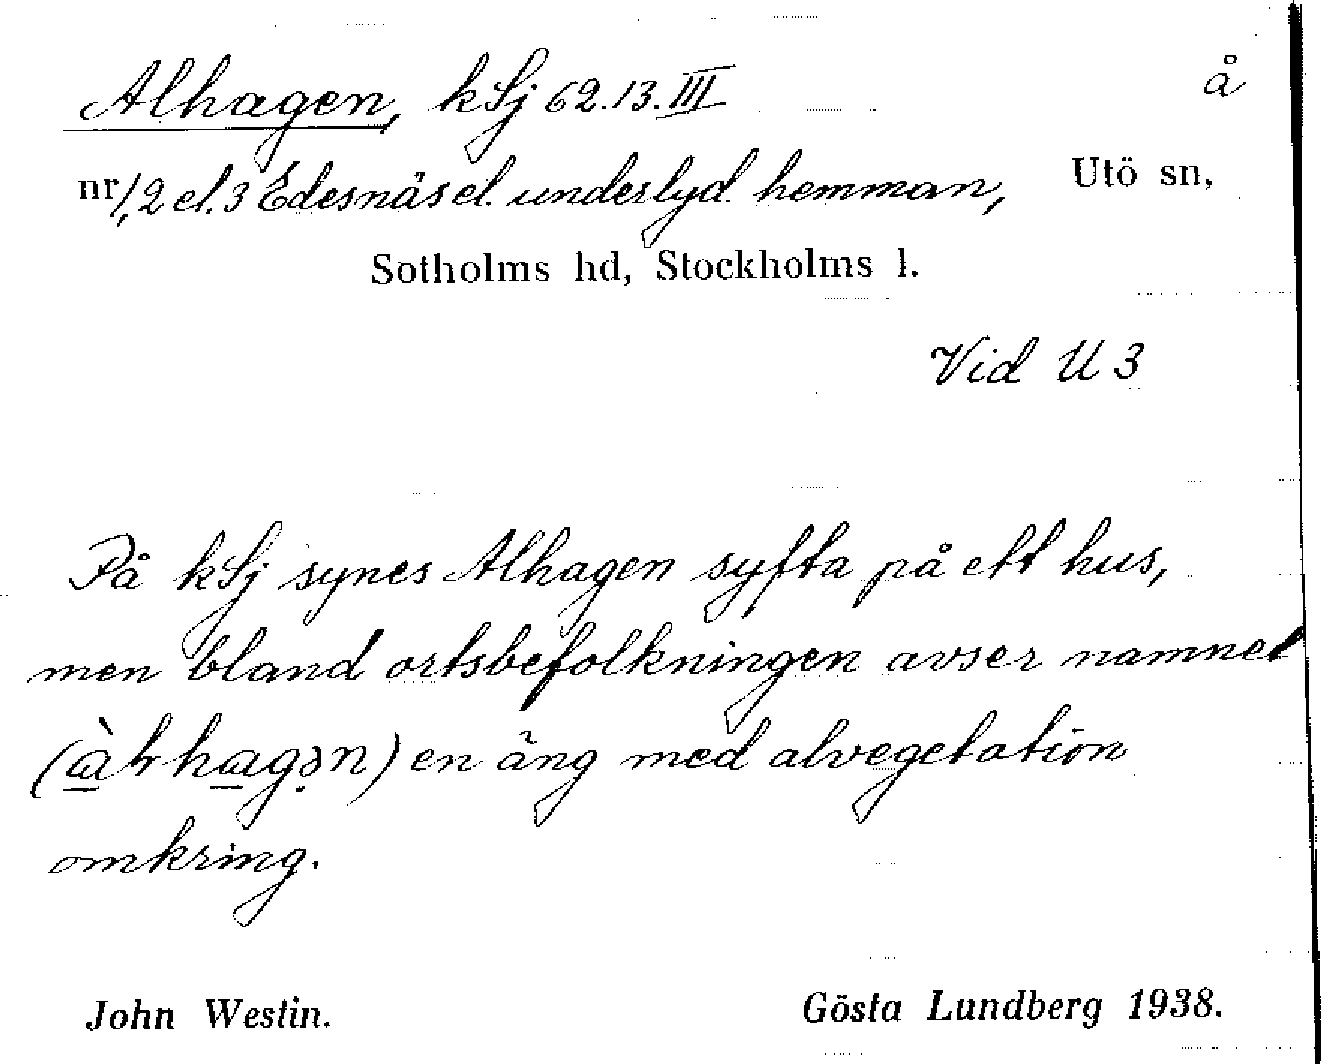 Alhagen, kSj 62.13.III å
nr 1, 2 el. 3 Edesnäs el. underlyd. hemman, Utö sn,
Sotholms hd, Stockholms l.
Vid U 3
På kSj synes Alhagen syfta på ett hus,
men bland ortsbefolkningen avser namnet
en äng med alvegetation
omkring.
John Westin. Gösta Lundberg 1938.